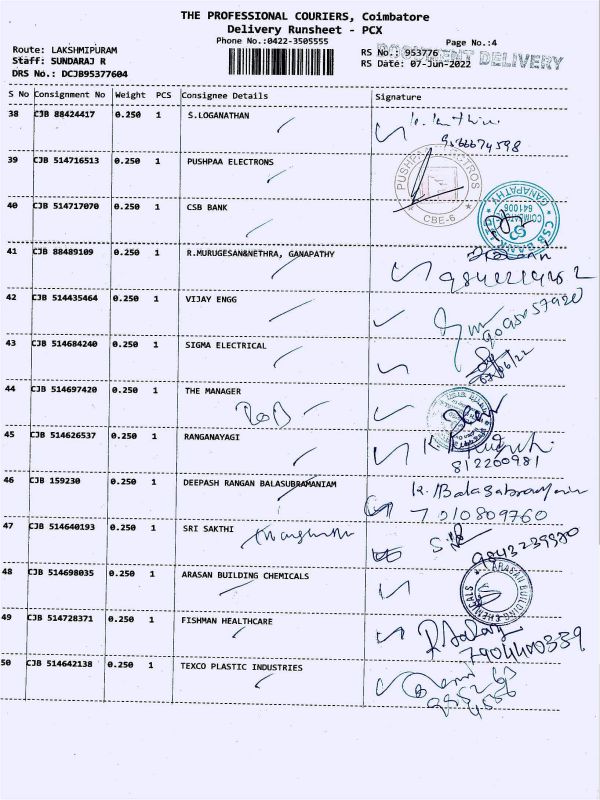 THE PROFESSIONAL COURIERS, Coimbatore
Delivery Runsheet - PCX
Phone No.:0422-3505555
Page No.:4
Route: LAKSHMIPURAM
RS No.: 953776
DOCUMENT DELIVERY
Staff: SUNDARAJ R
RS Date: 07-Jun-2022
DRS No.: DCJB95377604
S No Consignment No Weight PCS Consignee Details Signature
38 CJB 88424417 0.250 1 S.LOGANATHAN
39 CJB 514716513 0.250 1 PUSHPAA ELECTRONS
CBE-6
40 CJB 514717070 0.250 1 CSB BANK
CSB BANK GANAPATHY
COIMBATORE 641006
41 CJB 88489109 0.250 1 R.MURUGESAN&NETHRA, GANAPATHY
42 CJB 514435464 0.250 1 VIJAY ENGG
43 CJB 514684240 0.250 1 SIGMA ELECTRICAL
07/06/22
44 CJB 514697420 0.250 1 THE MANAGER
BOB
45 CJB 514626537 0.250 1 RANGANAYAGI
812200981
46 CJB 159230 0.250 1 DEEPASH RANGAN BALASUBRAMANIAM
K. Balasubramaniam
7010809760
47 CJB 514640193 0.250 1 SRI SAKTHI
9843239980
48 CJB 514698035 0.250 1 ARASAN BUILDING CHEMICALS
ARASAN BUILDING CHEMICALS
49 CJB 514728371 0.250 1 FISHMAN HEALTHCARE
7904400339
50 CJB 514642138 0.250 1 TEXCO PLASTIC INDUSTRIES